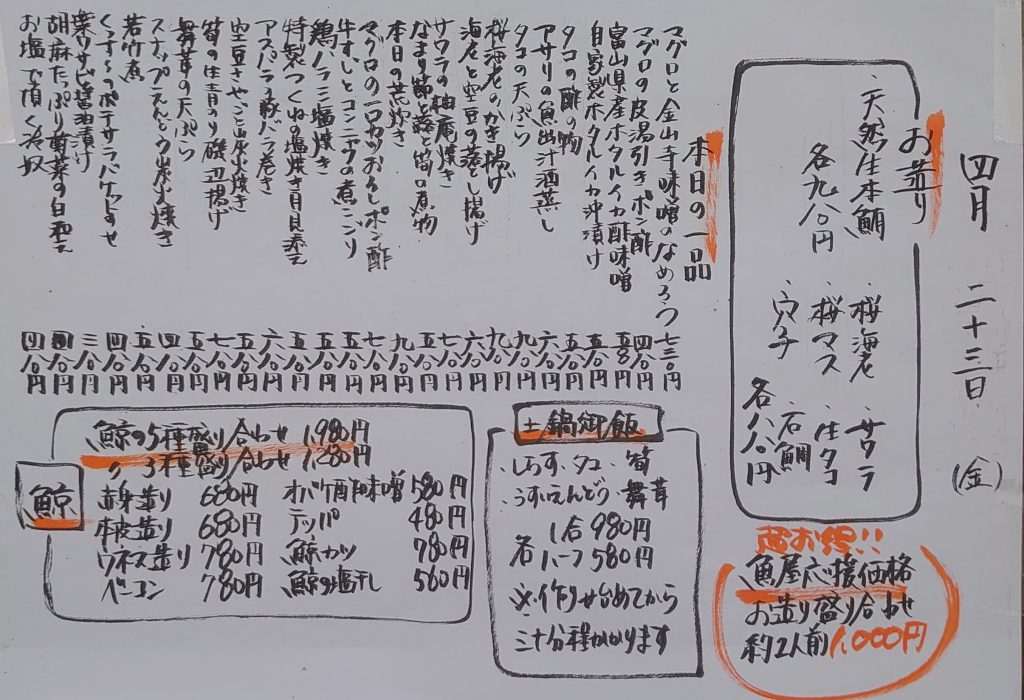 四月 二十三日 (金)
お造り
・天然生本鯛
各九八〇円
・桜海老 ・サワラ
・桜マス ・生タコ
・穴子 ・石鯛
各八八〇円
超お得!!
魚屋応援価格
お造り盛り合わせ
約2人前 1,000円
本日の一品
マグロと金山寺味噌のなめろう 七三〇円
マグロの皮湯引きポン酢 四八〇円
富山県産ホタルイカ酢味噌 五八〇円
自家製ホタルイカ沖漬け 五八〇円
タコの酢の物 五八〇円
アサリの魚出汁酒蒸し 六八〇円
タコの天ぷら 九八〇円
桜海老のかき揚げ 九八〇円
海老と空豆の落とし揚げ 六八〇円
サワラの柚庵焼き 七八〇円
なまり節と蕗と筍の煮物 五八〇円
本日の荒炊き 九八〇円
マグロの一口カツおろしポン酢 七八〇円
牛すじとコンニャクの煮こごり 五八〇円
鶏ハラミ塩焼き 五八〇円
特製つくねの塩焼き月見添え 六八〇円
アスパラの豚バラ巻き 五八〇円
空豆さやごと炭火焼き 七八〇円
筍の生青のり磯辺揚げ 五八〇円
舞茸の天ぷら 四八〇円
スナップえんどう炭火焼き 五八〇円
若竹煮 四八〇円
ポテサラバケット 四八〇円
葉ワサビ醤油漬け 三八〇円
胡麻たっぷり菊菜の白和え 四八〇円
お塩で頂く冷奴 四八〇円
土鍋御飯
・しらす・タコ・筍
・うすいえんどう・舞茸
各 1合 980円
ハーフ 580円
※作り始めてから
三十分程かかります
鯨
鯨の5種盛り合わせ 1,980円
〃 3種盛り合わせ 1,280円
赤身造り 680円
本皮造り 680円
ウネス造り 780円
ベーコン 780円
オバケ酢味噌 580円
テッパ 480円
鯨カツ 780円
鯨の塩干し 560円